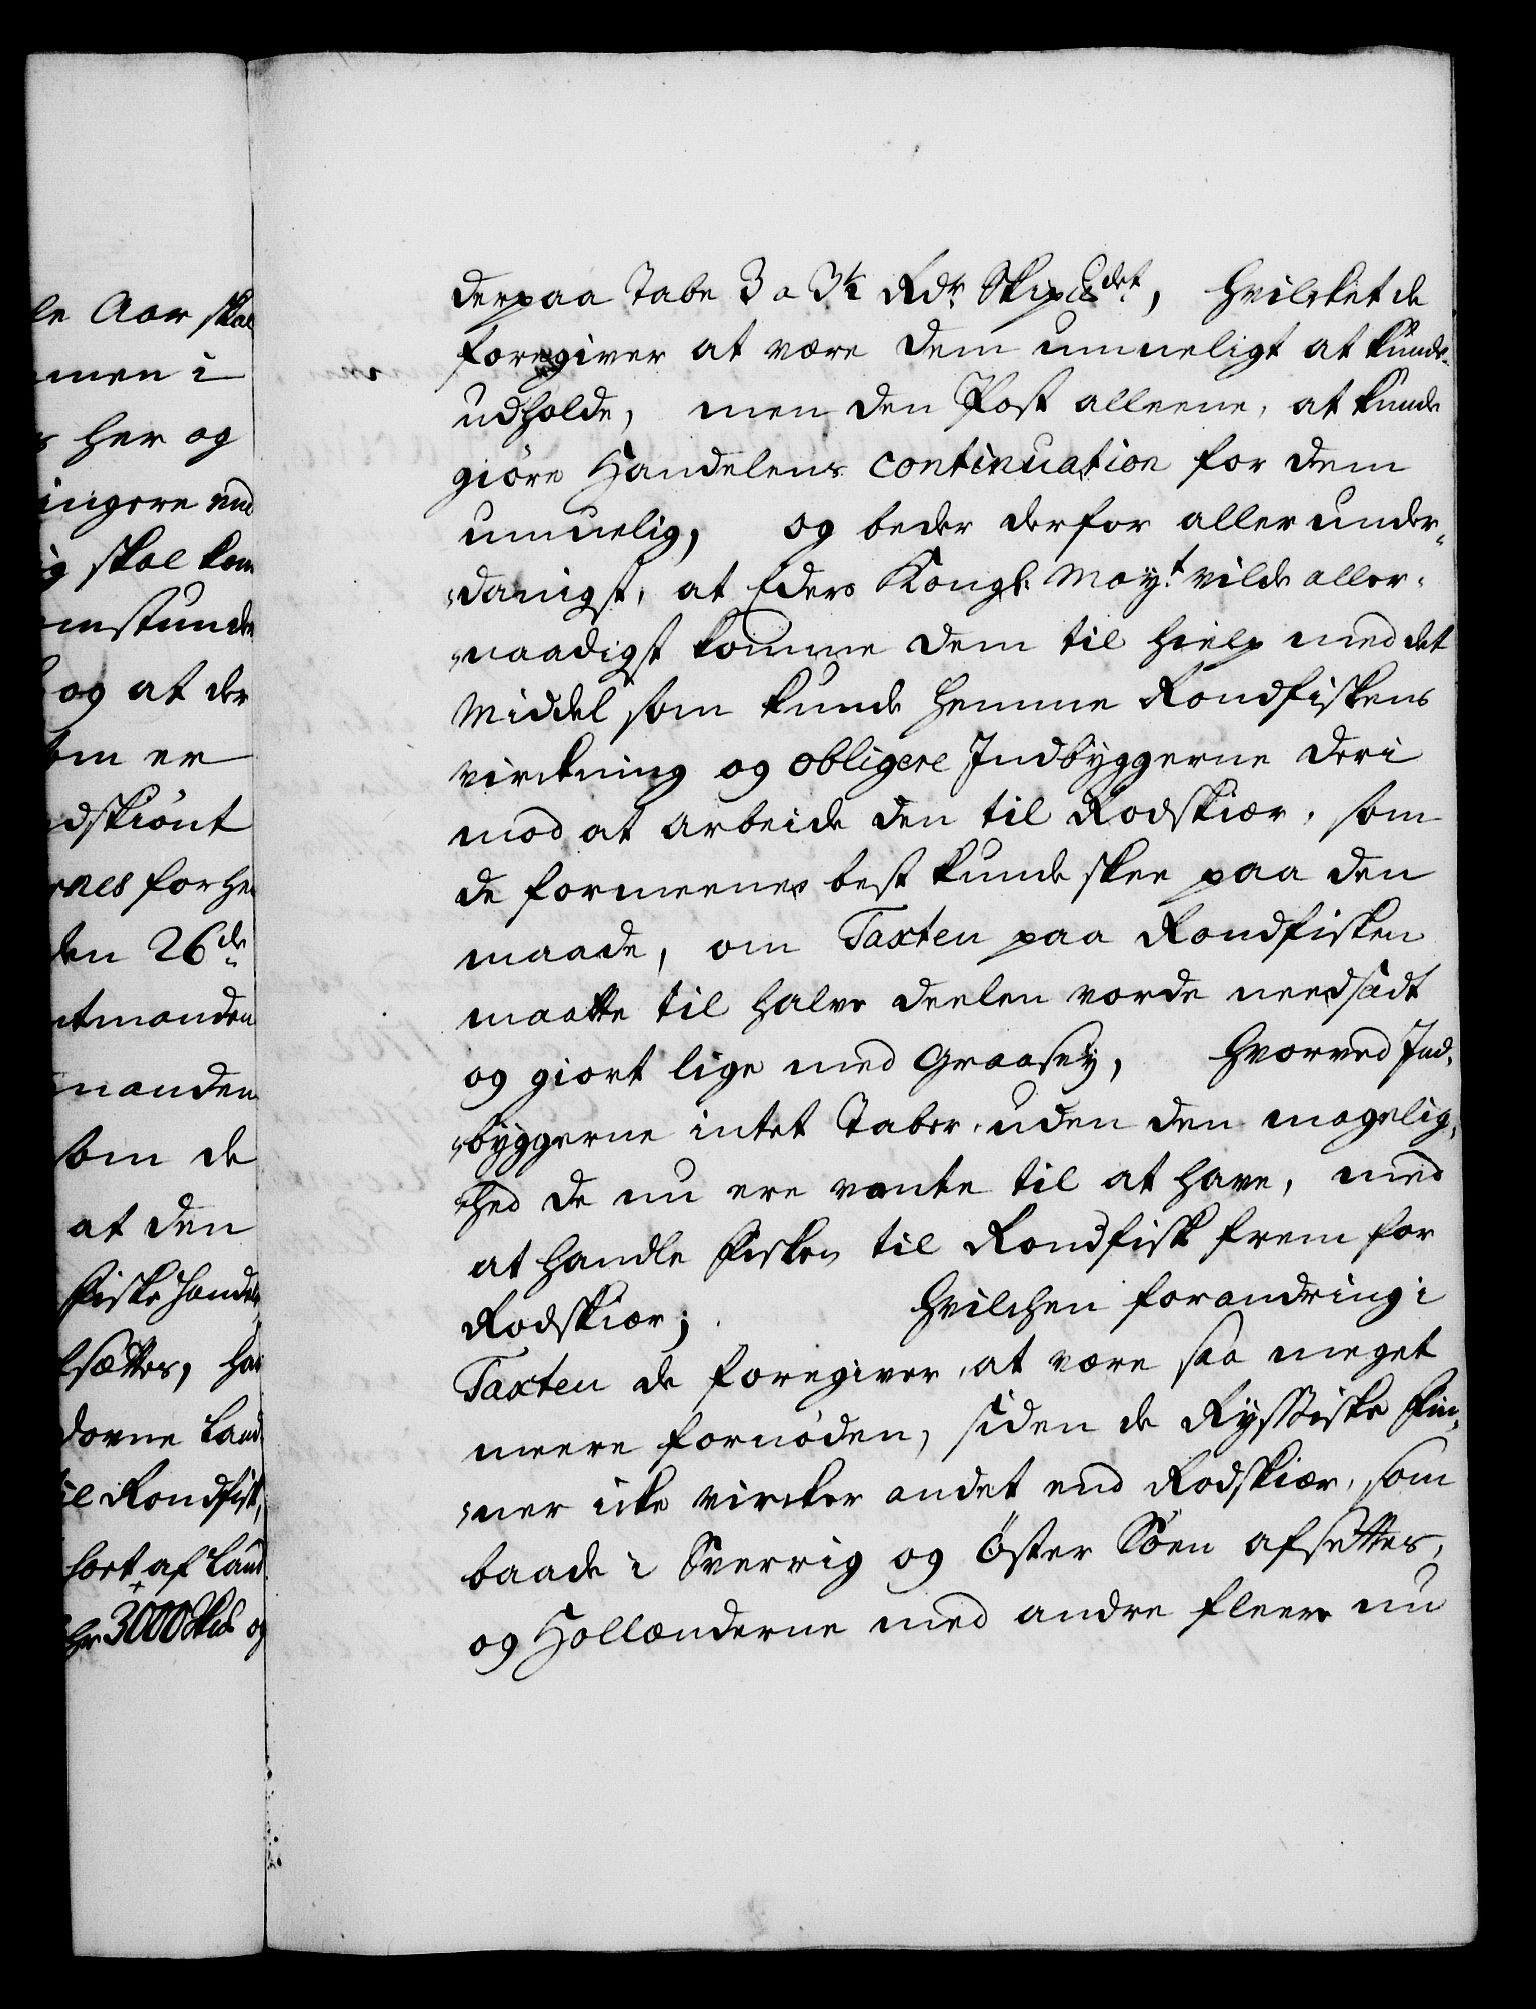 le Aar skal
men i
s her og
ingere end
ig skal kom
mstunde
og at der
om er
dskiönt
rnes forhe
den 26de
ntmanden
manden
som de
at den
Fiske Handel
lsættes, ha
dovne Land
til Rondfisk,
fort af Land
3000 Sk℔ og
derpaa Tabe 3 a 3½ Rdr Skip℔det, hvilcket de
foregiver at være dem umueligt at kunde
udholde, men den Post alleene, at kunde
giöre Handelens continuation for dem
umuelig, og beder derfor aller under-
danigst, at Eders Kongl: Mayt vilde aller-
naadigst komme dem til hielp med det
Middel som kunde hemme Rondfiskens
virckning og obligere Indbyggerne deri
mod at arbeide den til Rodskiær, som
de formeener best kunde skee paa den
maade, om Taxten paa Rondfisken
maatte til halve deelen vorde needsadt
og giort lige med Graasey, hvorved Ind-
byggerne intet Taber, uden den magelig-
hed de nu ere vante til at have, med
at handle Fisken til Rondfisk frem for
Rodskiær; hvilchen forandring i
Taxten de foregiver at være saa meget
meere fornöden, siden de Ryssiske Fin-
ner icke vircker andet end Rodskiær, som
baade i Sverrig og Öster Söen afsettes,
og Hollænderne med andre fleere nu